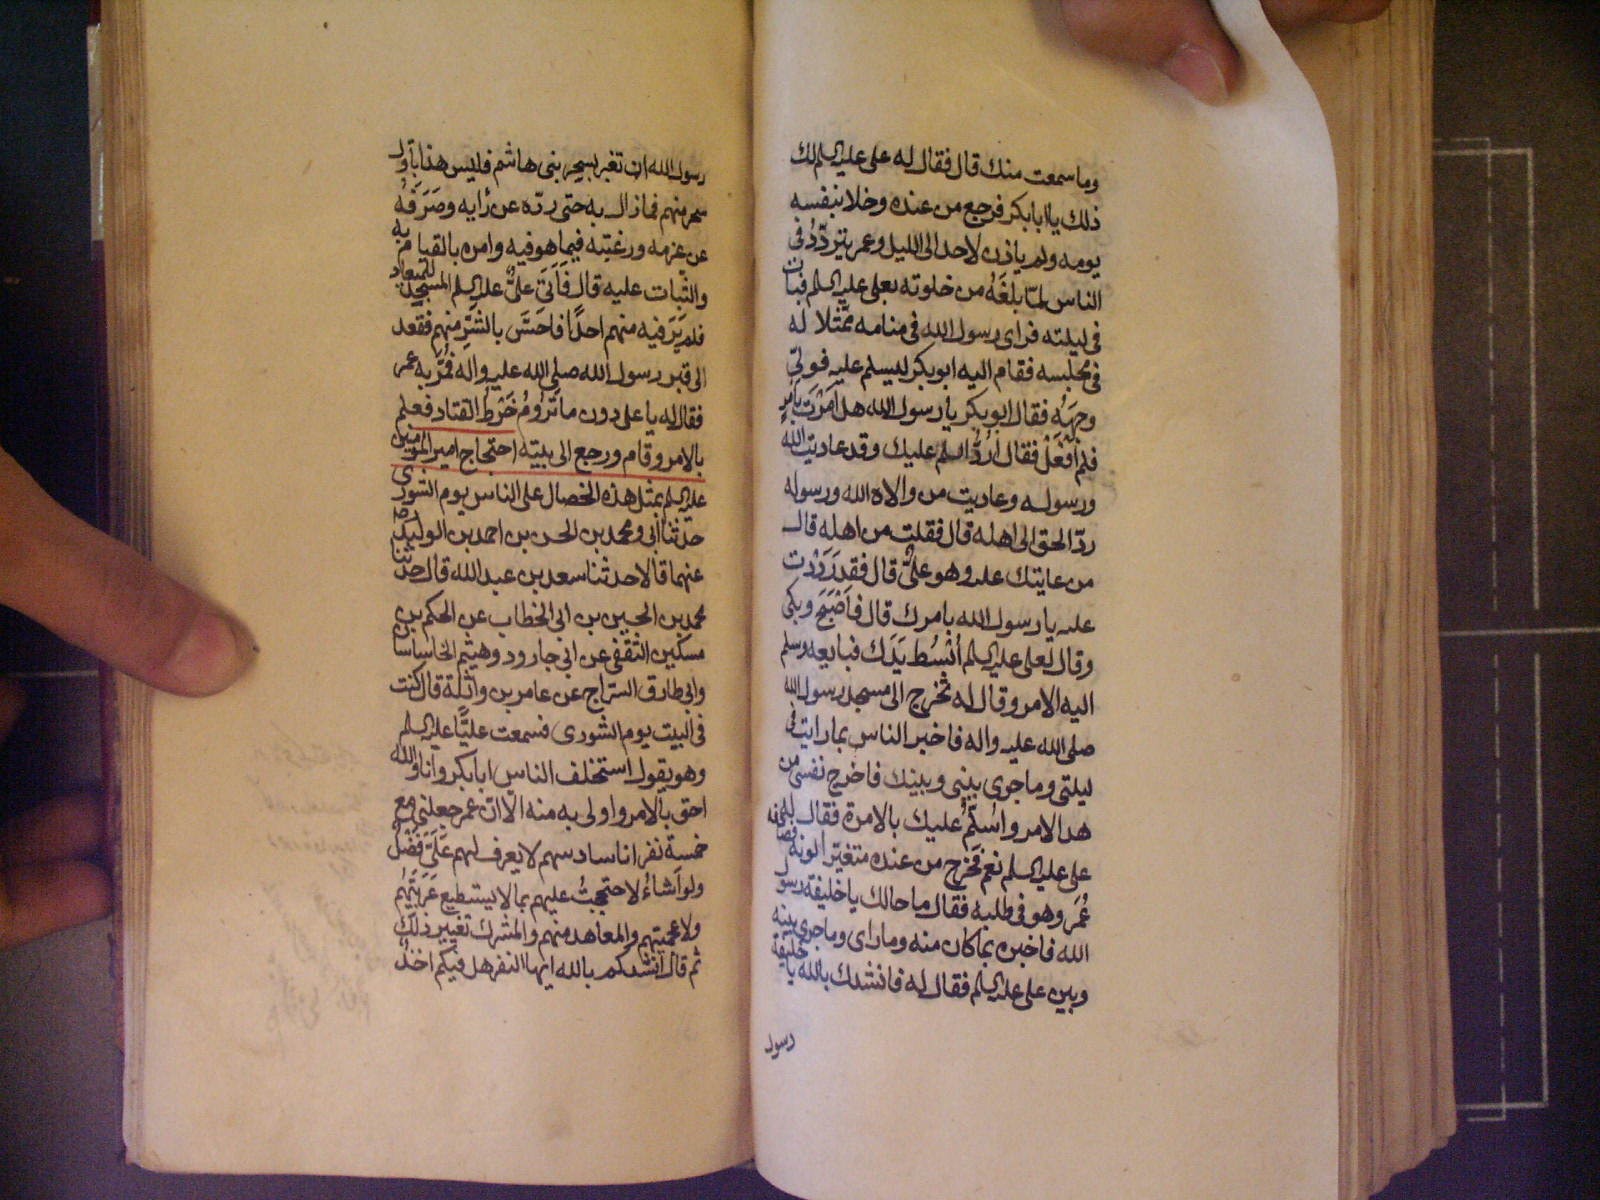 وما سمعت منك قال فقال له على عليه السلم لك
ذلك يا ابا بكر فرجع من عنده وخلا بنفسه
يومه ولم ياذن لاحد الى الليل وعمر يتردّد فى
الناس لمّا بلغَهُ من خلوته بعلى عليه السلم فبات
فى ليلته فراى رسول الله فى منامه ممّثلا له
فى مجلسه فقام اليه ابو بكر ليسلم عليه فولّى
وجهَهُ فقال ابو بكر يا رسول الله هل اَمَرْتَ بِاَمرٍ
فلم اَفْعَلْ فقال اَرُدُّ السلم عليك وقد عاديت الله
ورسوله وعاديت من والاه الله ورسوله
ردّ الحق الى اهله قال فقلت من اهله قال
من عاتبك عليه وهو علىٌّ قال فقد رَدَدْتُ
عليه يا رسول الله بامرك قال فاَصْبَحَ وبكى
وقال لعلى عليه السلم اُبْسُط يَدَك فبايعه وسلم
اليه الامر وقال له تخرج الى مسجد رسول الله
صلى الله عليه واله فاخبر الناس بما رايت فى
ليلتى وما جرى بينى وبينك فاخرج نفسى من
هذا الامر واُسَلّمُ عليك بالامرة فقال له
على عليه السلم نعم فخرج من عنده متغيّرا لونه فصادفه
عُمَر وهو فى طلبه فقال ما حالك يا خليفة رسول
الله فاخبره بما كان منه وما راى وما جرى بينه
وبين على عليه السلم فقال له فانشدك بالله يا خليفة
رسول
رسول الله ان تغتر بسحر بنى هاشم فليس هذا باَوّل
سحر منهم فما زال به حتى ردّه عن رَأيه وصَرَفَهُ
عن عزمه ورغبته فيما هو فيه وامره بالقيام به
والثبات عليه قال فَاَتَىَ علىٌّ عليه السلم المسجد للميعاد
فلم يَرَ فيه منهم احداً فاحَسَّ بالشَّرِ منهم فقعد
الى قبر رسول الله صلى الله عليه واله فمُرَّ به عمر
فقال له يا على دون ما تَرُومُ خَرْطُ القتاد فعلم
بالامر وقام ورجع الى بيته احتجاج امير المومنين
عليه السلم بمثل هذه الخصال على الناس يوم الشورى
حدثنا ابى ومحمد بن الحسن بن احمد بن الوليد رضى
عنهما قالا حدثنا سعد بن عبد الله قال حدثنا
محمد بن الحسين بن ابى الخطاب عن الحكم بن
مسكين الثقفى عن ابى جارود وهيثم
وابى طارق السّراج عن عامر بن واثلة قال كنت
فى البيت يوم الشورى فسمعت عليًّا عليه السلم
وهو يقول استخلف الناس ابا بكر وانا والله
احق بالامر واولى به منه الا ان عمر جعلنى مع
خمسة نفر انا سادسهم لا يعرف لهم عَلَىَّ فَضْلٌ
ولو اَشاءُ لاحتججتُ عليهم بما لا يستطيع عَرَبِيّهُم
ولا عجميتهم والمعاهد منهم والمشرك تغيير ذلك
ثم قال انشدكم بالله ايها النفر هل فيكم احدٌ